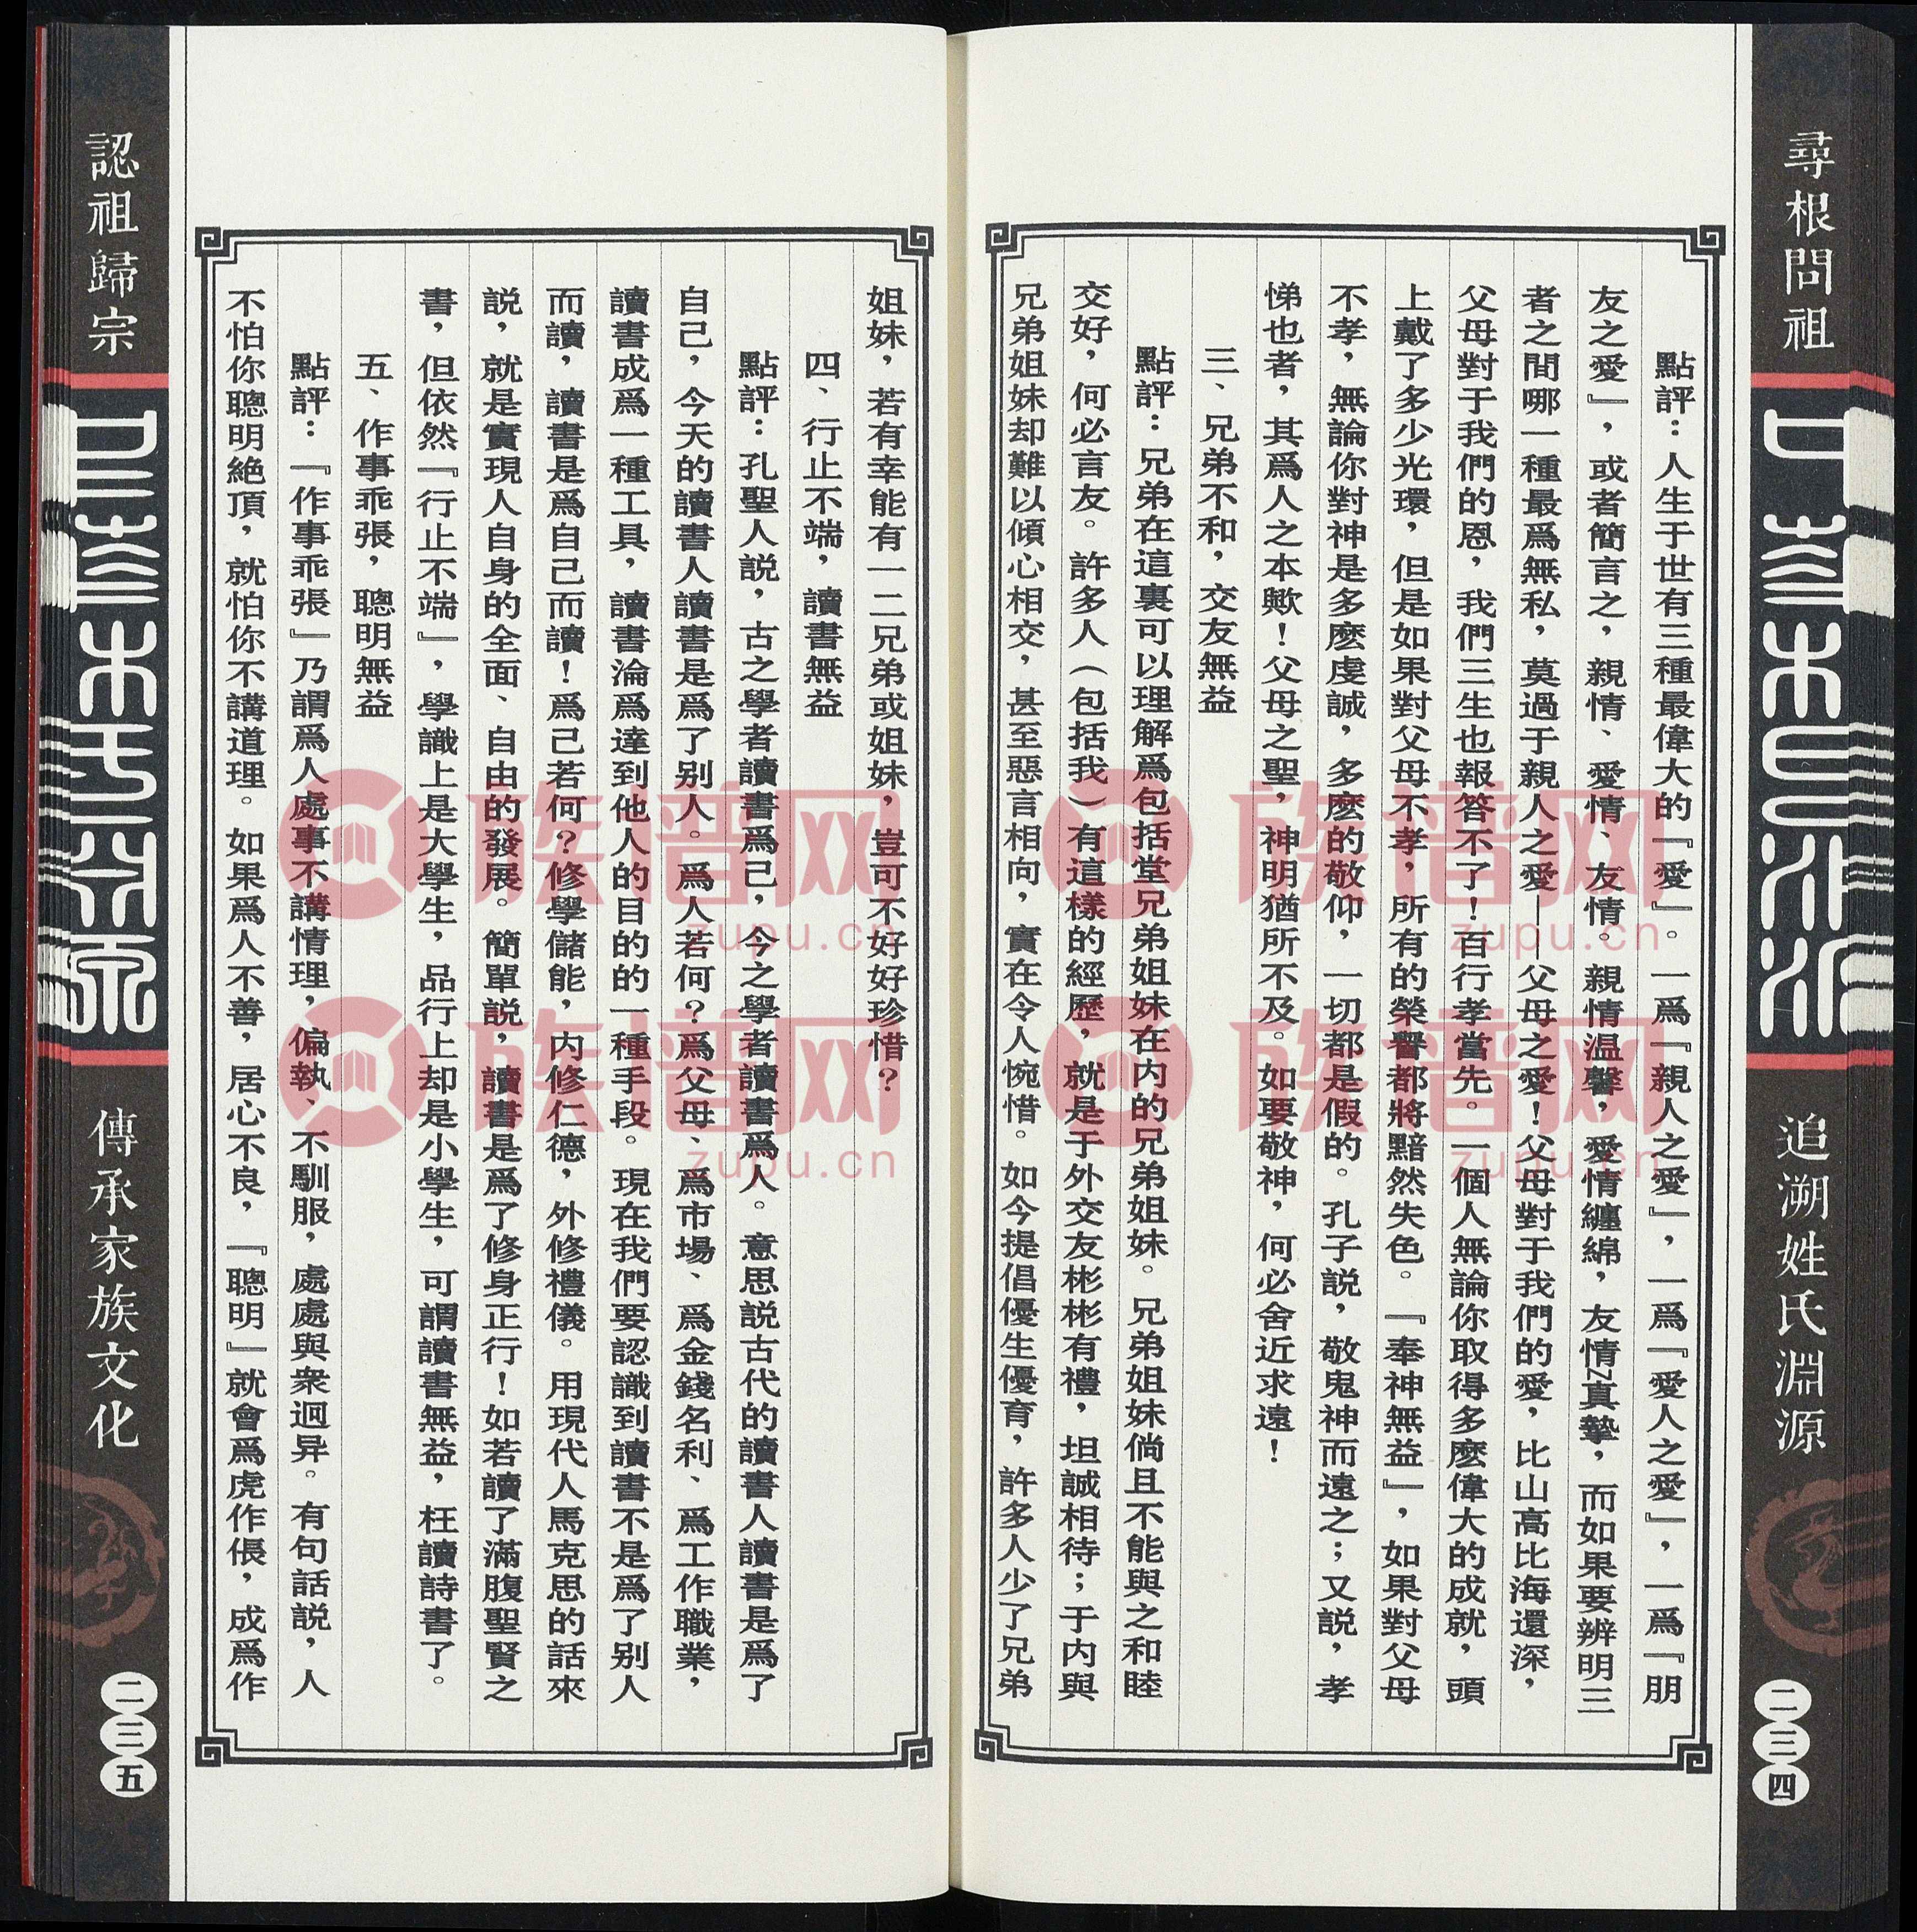 尋根問祖
追溯姓氏淵源
二三四
點評：人生于世有三種最偉大的『愛』。一爲『親人之愛』，一爲『愛人之愛』，一爲『朋
友之愛』，或者簡言之，親情、愛情、友情。親情温馨，愛情纏綿，友情Z真摯，而如果要辨明三
者之間哪一種最爲無私，莫過于親人之愛——父母之愛！父母對于我們的愛，比山高比海還深，
父母對于我們的恩，我們三生也報答不了！百行孝當先。一個人無論你取得多麽偉大的成就，頭
上戴了多少光環，但是如果對父母不孝，所有的榮譽都將黯然失色。『奉神無益』，如果對父母
不孝，無論你對神是多麽虔誠，多麽的敬仰，一切都是假的。孔子説，敬鬼神而遠之；又説，孝
悌也者，其爲人之本歟！父母之聖，神明猶所不及。如要敬神，何必舍近求遠！
三、兄弟不和，交友無益
點評：兄弟在這裏可以理解爲包括堂兄弟姐妹在内的兄弟姐妹。兄弟姐妹倘且不能與之和睦
交好，何必言友。許多人（包括我）有這樣的經歷，就是于外交友彬彬有禮，坦誠相待；于内與
兄弟姐妹却難以傾心相交，甚至惡言相向，實在令人惋惜。如今提倡優生優育，許多人少了兄弟
姐妹，若有幸能有一二兄弟或姐妹，豈可不好好珍惜？
四、行止不端，讀書無益
點評：孔聖人説，古之學者讀書爲己，今之學者讀書爲人。意思説古代的讀書人讀書是爲了
自己，今天的讀書人讀書是爲了别人。爲人若何？爲父母、爲市場、爲金錢名利、爲工作職業，
讀書成爲一種工具，讀書淪爲達到他人的目的的一種手段。現在我們要認識到讀書不是爲了别人
而讀，讀書是爲自己而讀！爲己若何？修學儲能，内修仁德，外修禮儀。用現代人馬克思的話來
説，就是實現人自身的全面、自由的發展。簡單説，讀書是爲了修身正行！如若讀了滿腹聖賢之
書，但依然『行止不端』，學識上是大學生，品行上却是小學生，可謂讀書無益，枉讀詩書了。
五、作事乖張，聰明無益
點評：『作事乖張』乃謂爲人處事不講情理，偏執、不馴服，處處與衆迥异。有句話説，人
不怕你聰明絶頂，就怕你不講道理。如果爲人不善，居心不良，『聰明』就會爲虎作倀，成爲作
認祖歸宗
傳承家族文化
二三五
族谱网
zupu.cn
族谱网
zupu.cn
族谱网
zupu.cn
族谱网
zupu.cn